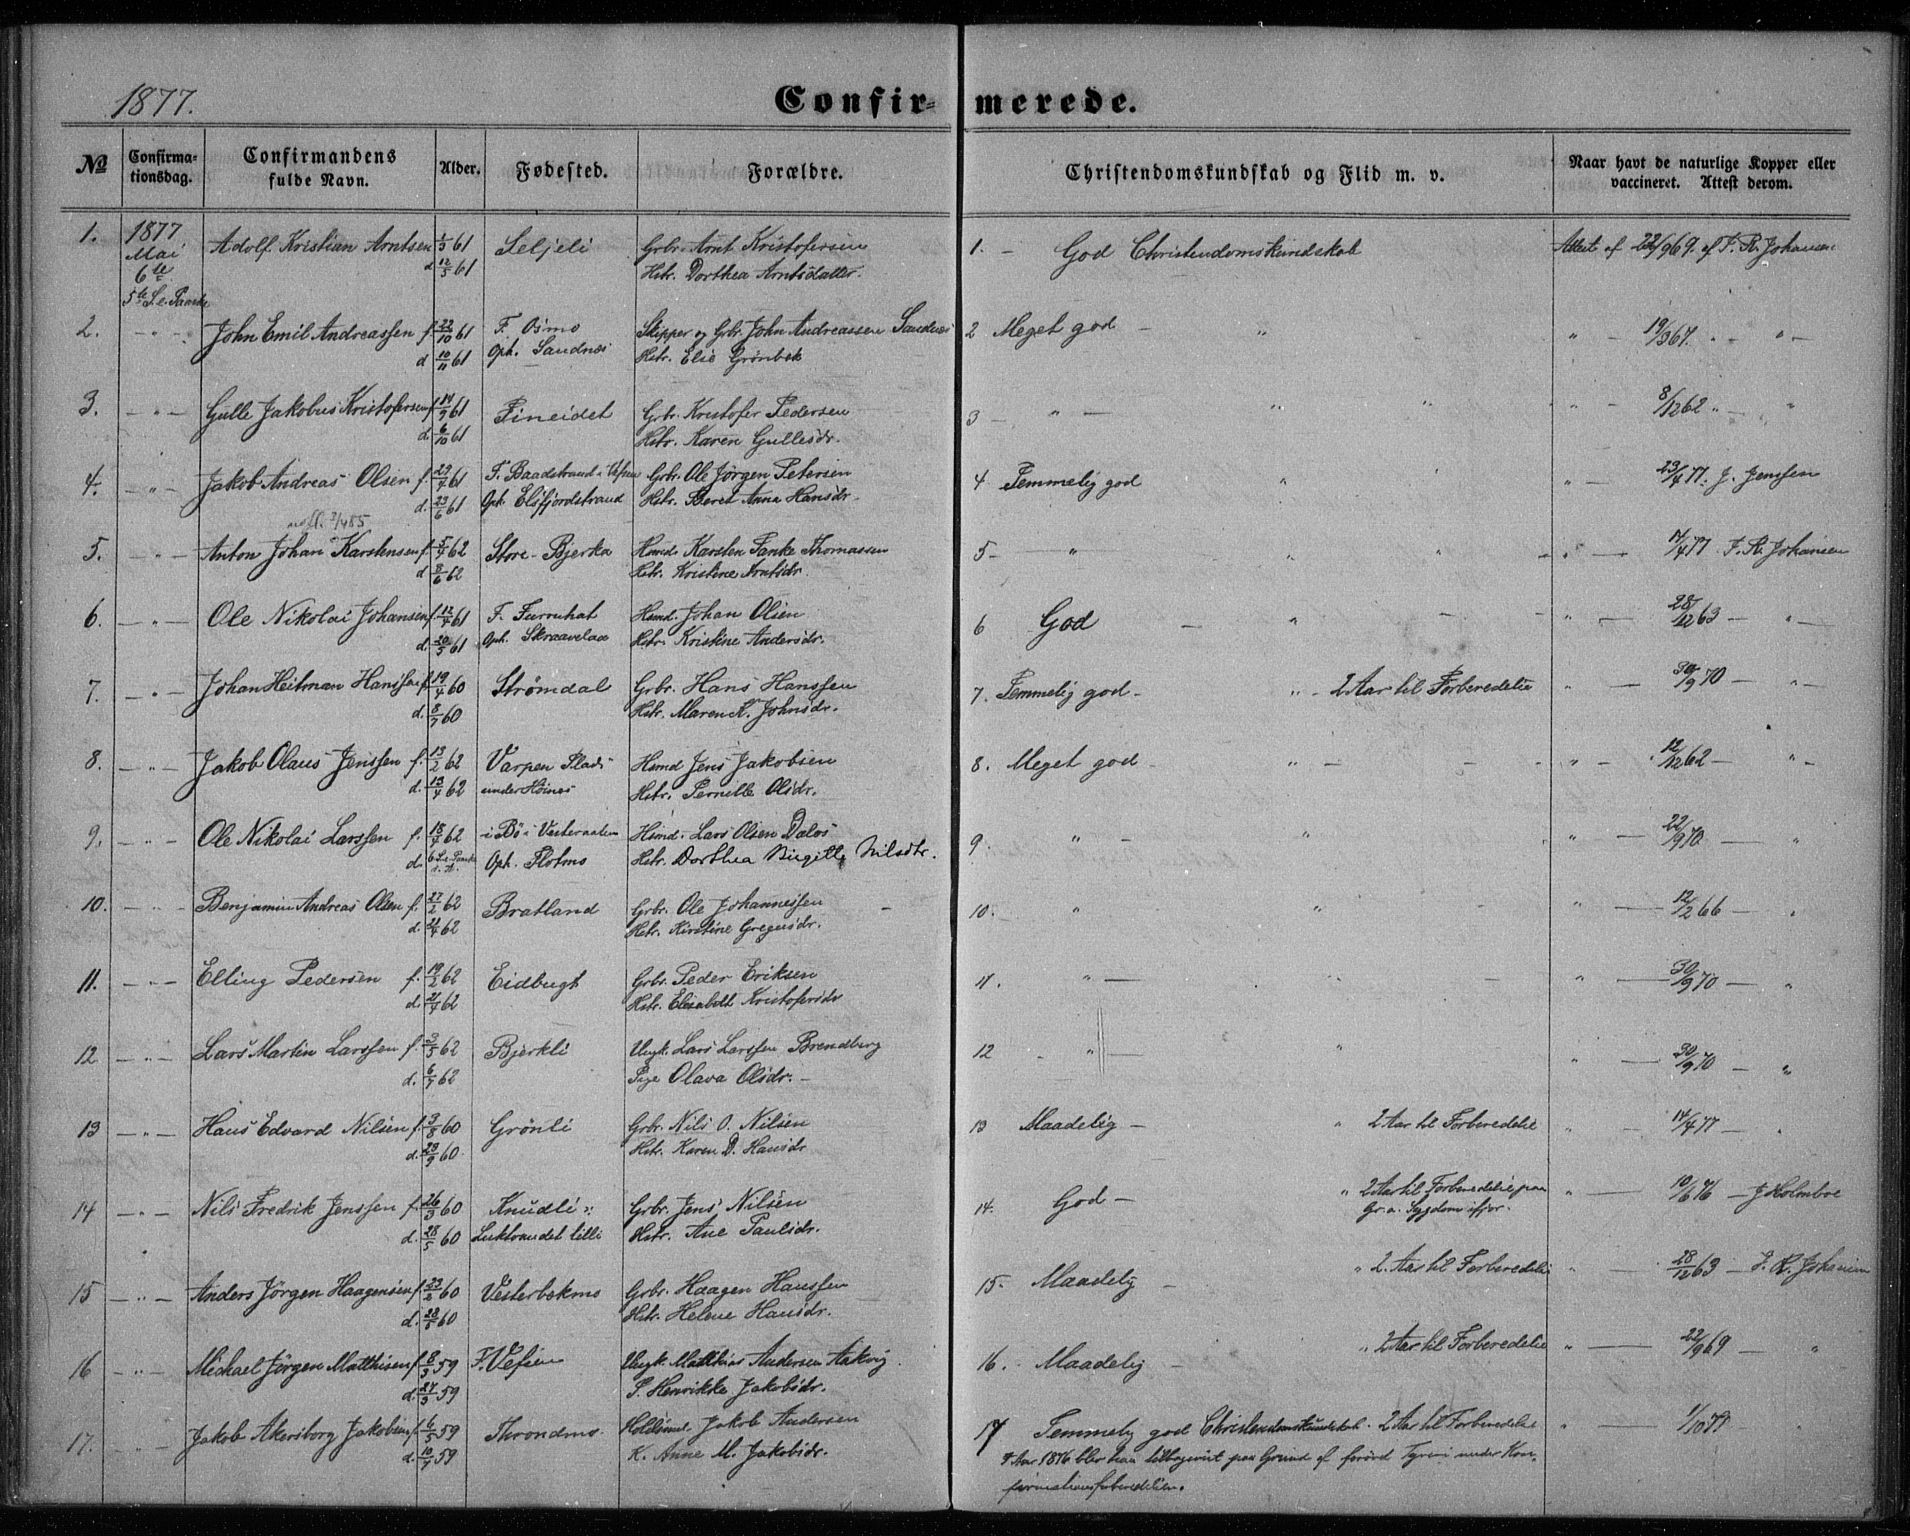 1877.
Confirmerede.
№ Confirmationsdag. Confirmandens fulde Navn. Alder. Fødested. Forældre. Christendomskundskab og Flid m. v. Naar havt de naturlige Kopper eller vaccineret. Attest derom.
1. 1877 Adolf Kristian Arntsen 1/3 61 Seljeli Grbr. Arnt Kristofersen 1. - God Christendomskundskab Attest af 22/9 69. af F. R. Johansen
Mai d 12/5 61 Hstr. Dorthea Arntsdatter.
6te
5te S. e. Paaske
2. - " - John Emil Andreassen f. 22/10 61 F. Osmo Skipper og Grbr. John Andreassen Sandnes 2 Meget god - " " - 19/9 67. " - " -
d. 10/11 61 Oph. Sandnes Hstr. Elie Grønbek
3. - " - Gulle Jakobus Kristofersen f. 14/9 61 Fineidet Grbr. Kristofer Pedersen 3 - " - " " " - 8/12 62 " - "
d. 6/10 61 Hstr. Karen Gullesdr.
4. - " - Jakob Andreas Olsen f. 29/4 61 F. Baadstrand i Vefsen Grbr. Ole Jørgen Petersen 4 Temmelig god " " " - 23/4 77. J. Jenssen
d. 23/6 61 Oph. Elsfjordstrand Hstr. Beret Anna Hansdr.
5. - " - Anton Johan Karstensen f. 5/4 62 Store-Bjerka Hsmd. Karsten Tanke Thomassen 5 - " " " " - 17/4 77 F. R. Johansen
d. 8/6 62 Hstr. Kristine Arntsdr.
6. - " - Ole Nikolai Johansen f. 12/4 61 F. Furruhat Hsmd. Johan Olsen 6 God - " - " - 28/12 63 - " -
d. 20/5 61 Oph. Skraavelaa Hstr. Kristine Andersdr.
7. - " - Johan Heitman Hanssen f. 19/4 60 Strømdal Grbr. Hans Hanssen 7. Temmelig god - " - 2 Aar til Forberedelse " - 30/9 70 - " -
d. 8/7 60 Hstr. Maren K. Johnsdr.
8. - " - Jakob Olaus Jenssen f. 13/2 62 Varpen Plads Hsmd Jens Jakobsen 8. Meget god - " - " - 12/12 62 - " -
d. 13/4 62 under Høines Hstr. Pernille Olsdr.
9. - " - Ole Nikolai Larssen f. 18/4 62 i Bø i Vesteraalen Hsmd. Lars Olsen Dalos 9. " - " " " - 22/9 70 - "
d. 6 S. e. Paaske Oph. Flotmo Hstr. Dorthea Birgitte Nilsdtr.
10. - " - Benjamin Andreas Olsen f. 27/2 62 Bratland Grbr. Ole Johannessen 10. " " " - 12/2 66 - "
d. 21/4 62 Hstr. Kirstine Gregusdr.
11. - " - Elling Pedersen f. 19/2 62 Eidbugt Grbr. Peder Eriksen 11. " - " - " - 30/9 70 - "
d. 21/4 62 Hstr. Elisabeth Kristofersdr
12 - " - Lars Martin Larssen f. 3/5 62 Bjerkli Ungk. Lars Larssen Brendberg 12 " - " " - 30/9 70 - "
d. 6/7 62 Pige Olava Olsdr. -
13 - " - Hans Edvard Nilsen f. 3/8 60 Grønli Grbr. Nils O. Nilsen 13 Maadelig - " 2 Aar til Forberedelse " - 14/4 77 - "
d. 23/9 60. Hstr. Karen D. Hansdr
14 - " - Nils Fredrik Jenssen f. 26/3 60 Knudli i Grbr. Jens Nilsen 14. God - " 2 Aar til Forberedelse paa " - 10/6 76 - J Holmboe
d. 28/5 60 Luktvandet lille Hstr. Ane Paulsdr. Gr. a. Sygdom ifjor.
15 - " - Anders Jørgen Haagensen f. 23/2 60 Vesterbekmo Grbr. Haagen Hanssen 15. Maadelig - " 2 Aar til Forberedelse " - 28/12 63 - F. R. Johansen
d. 28/5 60 Hstr. Helene Hansdr.
16 - " - Michael Jørgen Matthisen f. 8/3 59 F. Vefsen Ungk. Matthias Andersen Aakvig 16. Maadelig - " 2 Aar til Forberedelse " - 22/9 69 - "
d. 27/3 59 P. Henrikke Jakobsdr.
17. - " - Jakob Akersborg Jakobsen f. 6/5 59 Throndmo Jakob Andersen 17 Temmelig god Christendomskundskab - 2 Aar til Forberedelse " - 1/10 77 "
d. 10/7 59 K. Anne M. Jakobsdr. Aar 1876 blev han tilbagevist paa Grund af Tyveri under Kon-
firmationsforberedelsen.